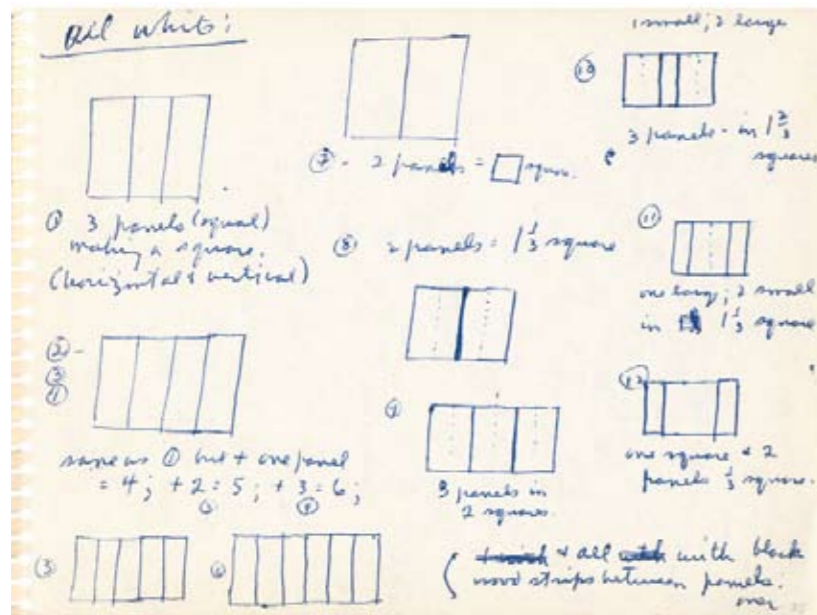 all white:
① 3 panels (equal)
making a square.
(horizontal & vertical)
②-
③
①
same as ① but + one panel
= 4; + 2 = 5; + 3 = 6;
③
⑦ - 2 panels = square.
⑧ 2 panels = 1 1/3 square
⑨
3 panels in
2 squares.
1 small; 2 large
⑩
3 panels - in 1 2/3
squares
⑪
one large; 2 small
in 1 1/3 square
⑫
one square & 2
panels 1/3 square.
& all with black
wood strips between panels.
over